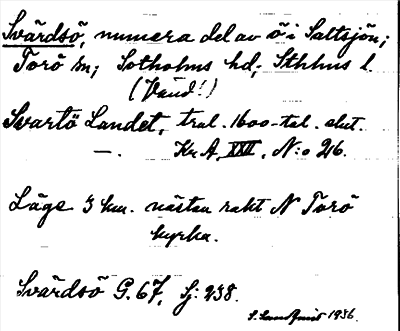 Svärdsö, numera del av ö i Saltsjön;
Torö sn; Sotholms hd; Sthlms l.
(Vänd!)
Svartö Landet, trol. 1600-tal. slut.
—. Kr. A, XXII, N:o 216.
Läge 3 km. nästan rakt N Torö
kyrka.
Svärdsö G. 67, Sj: 238.
S. Landqvist 1936.